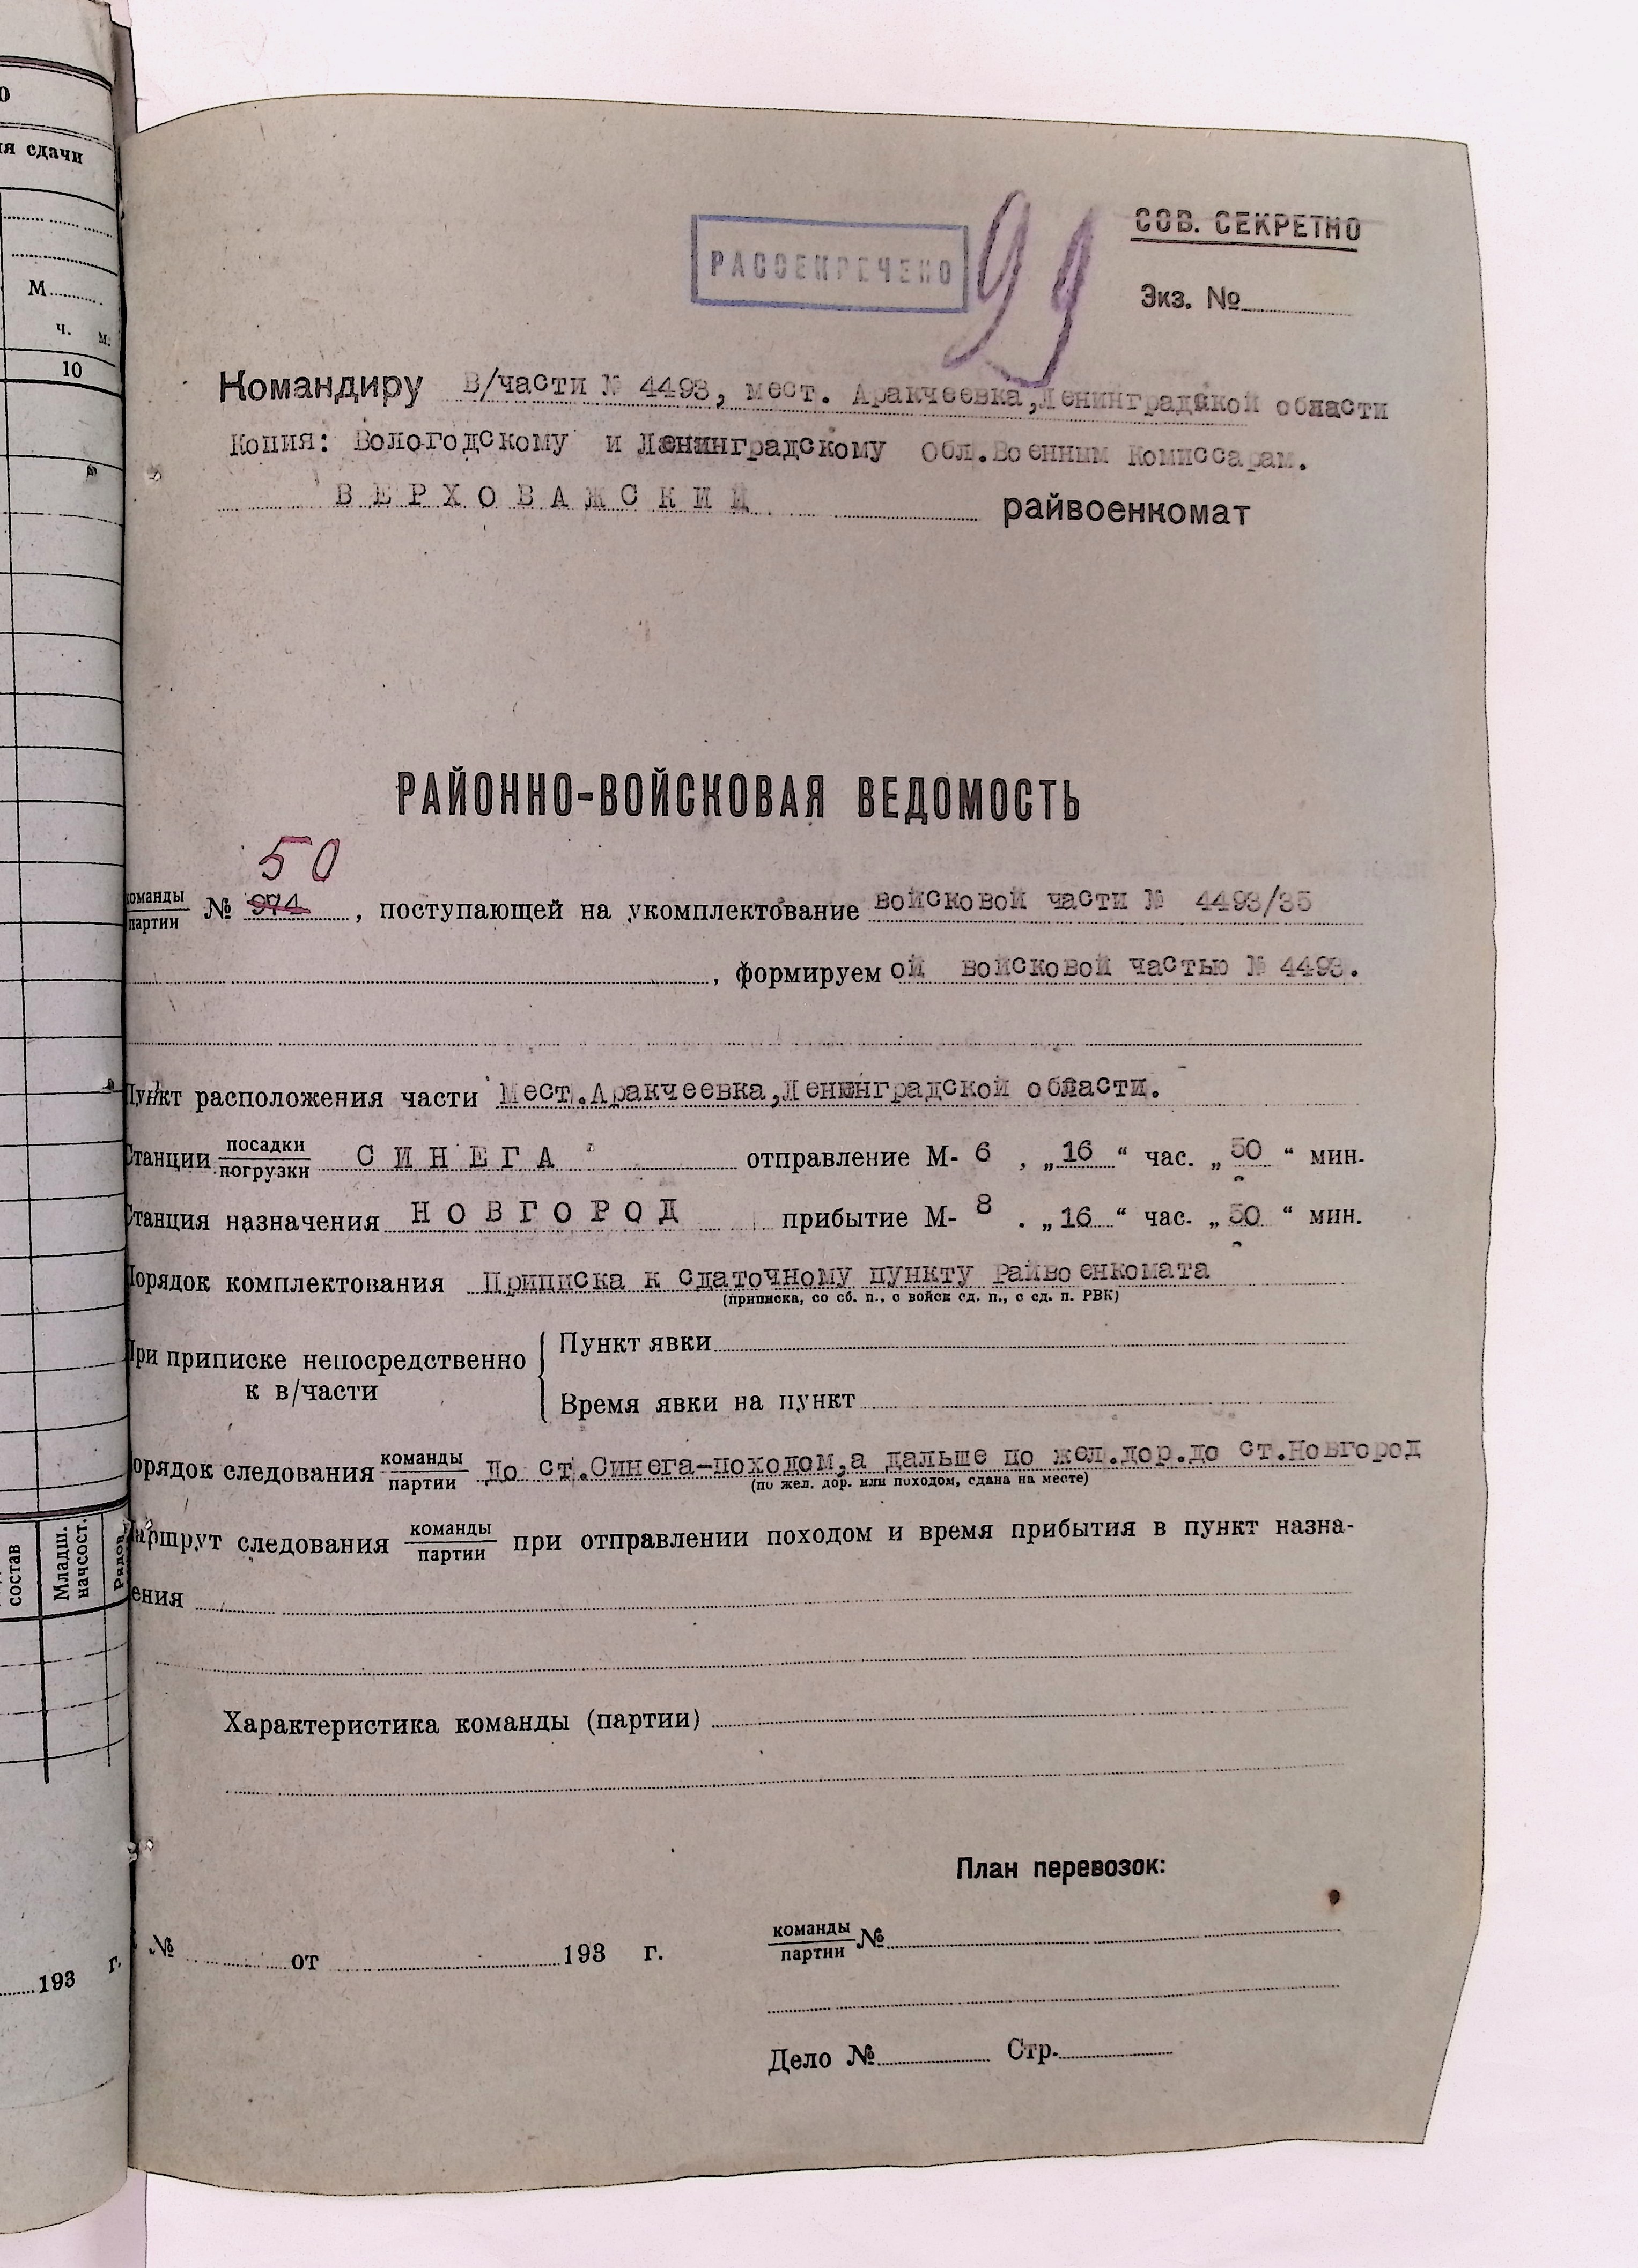 О
ия сдачи
М
ч. м.
10
состав
Младш.
начсост.
193 г.
99
РАССЕКРЕЧЕНО
СОВ. СЕКРЕТНО
Экз. №
Командиру В/части № 4493, мест. Аракчеевка,Ленинградской области
Копия: Вологодскому и Ленинградскому Обл.Военным Комиссарам.
ВЕРХОВАЖСКИЙ райвоенкомат
РАЙОННО-ВОЙСКОВАЯ ВЕДОМОСТЬ
50
команды
партии № 974, поступающей на укомплектование войсковой части № 4493/35
, формируемой войсковой частью № 4493.
Пункт расположения части Мест.Аракчеевка,Ленинградской области.
Станции посадки
погрузки СИНЕГА отправление М- 6 , „16“ час. „50“ мин.
Станция назначения НОВГОРОД прибытие М- 8 . „16“ час. „50“ мин.
Порядок комплектования Приписка к сдаточному пункту Райвоенкомата
(приписка, со сб. п., с войск сд. п., с сд. п. РВК)
При приписке непосредственно
к в/части
Пункт явки
Время явки на пункт
Порядок следования команды
партии до ст.Синега-походом,а дальше по жел.дор.до ст.Новгород
(по жел. дор. или походом, сдана на месте)
Маршрут следования команды
партии при отправлении походом и время прибытия в пункт назна-
ения
Характеристика команды (партии)
План перевозок:
команды
партии №
№ от 193 г.
Дело № Стр.